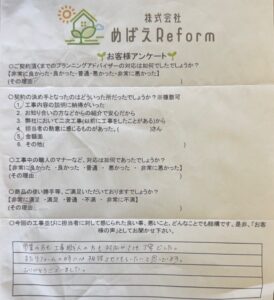 株式会社
めばえReform
お客様アンケート
○ご契約頂くまでのプランニングアドバイザーの対応は如何でしたでしょうか?
【非常に良かった・良かった・普通・悪かった・非常に悪かった】
(その理由 )
○契約の決め手となったのはどういった所だったでしょうか?※複数可
1, 工事内容の説明に納得がいった
2, お知り合いの方などからの紹介で安心だから
3, 弊社において二次工事(以前に工事をしたことがある)から
4, 担当者の熱意に感じるものがあった、( )さん
5, 金額面
6, その他( )
○工事中の職人のマナーなど、対応は如何であったでしょうか?
【非常に良かった ・ 良かった ・ 普通 ・ 悪かった ・ 非常に悪かった】
(その理由 )
○商品の使い勝手等、ご満足いただいておりますでしょうか?
【非常に満足 ・ 満足 ・ 普通 ・ 不満 ・ 非常に不満】
(その理由 )
○今回の工事並びに担当者に対して感じられた良い事、悪いこと、どんなことでも結構です、是非、「お客様の声」としてお聞かせ下さい。
営業の方も工事職人の方も対応がとても丁寧でした。
またリフォームの時には相談させてもらいたいと思います。
ありがとうございました。